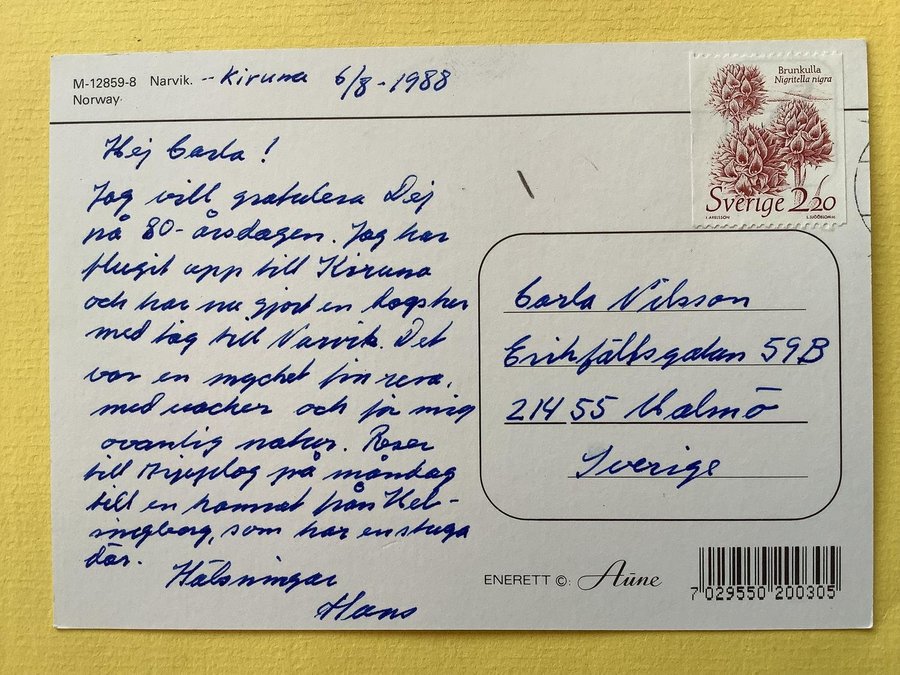 M-12859-8 Narvik. -- Kiruna 6/8 - 1988
Norway
Hej Carla !
Jag vill gratulera Dej
på 80-årsdagen. Jag har
flugit upp till Kiruna
och har nu gjort en dagstur
med tåg till Narvik. Det
var en mycket fin resa,
med vacker och för mig
ovanlig natur. Reser
till Arjeplog på måndag
till en kamrat från Hel-
singborg, som har en stuga
där.
Hälsningar
Hans
Brunkulla
Nigritella nigra
Sverige 2.20
Carla Nilsson
Erikfältsgatan 59B
214 55 Malmö
Sverige
ENERETT ©: Aune
7 029550 200305